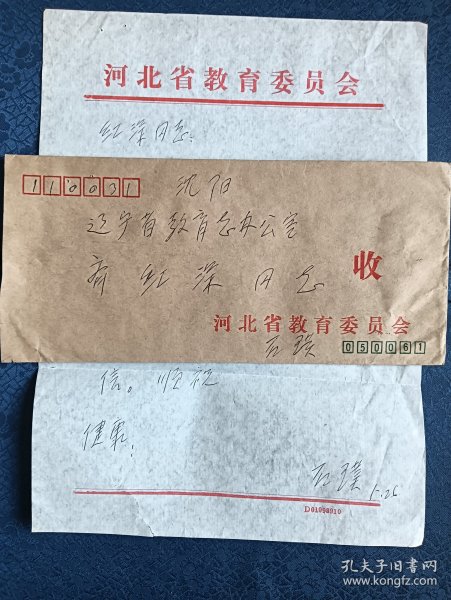 河北省教育委员会
红深同志:
110031
沈阳
辽宁省教育志办公室
齐红深同志
收
河北省教育委员会
石璞
050061
信。顺祝
健康!
石璞
5.26
D01098910
孔夫子旧书网
www.kongfz.com